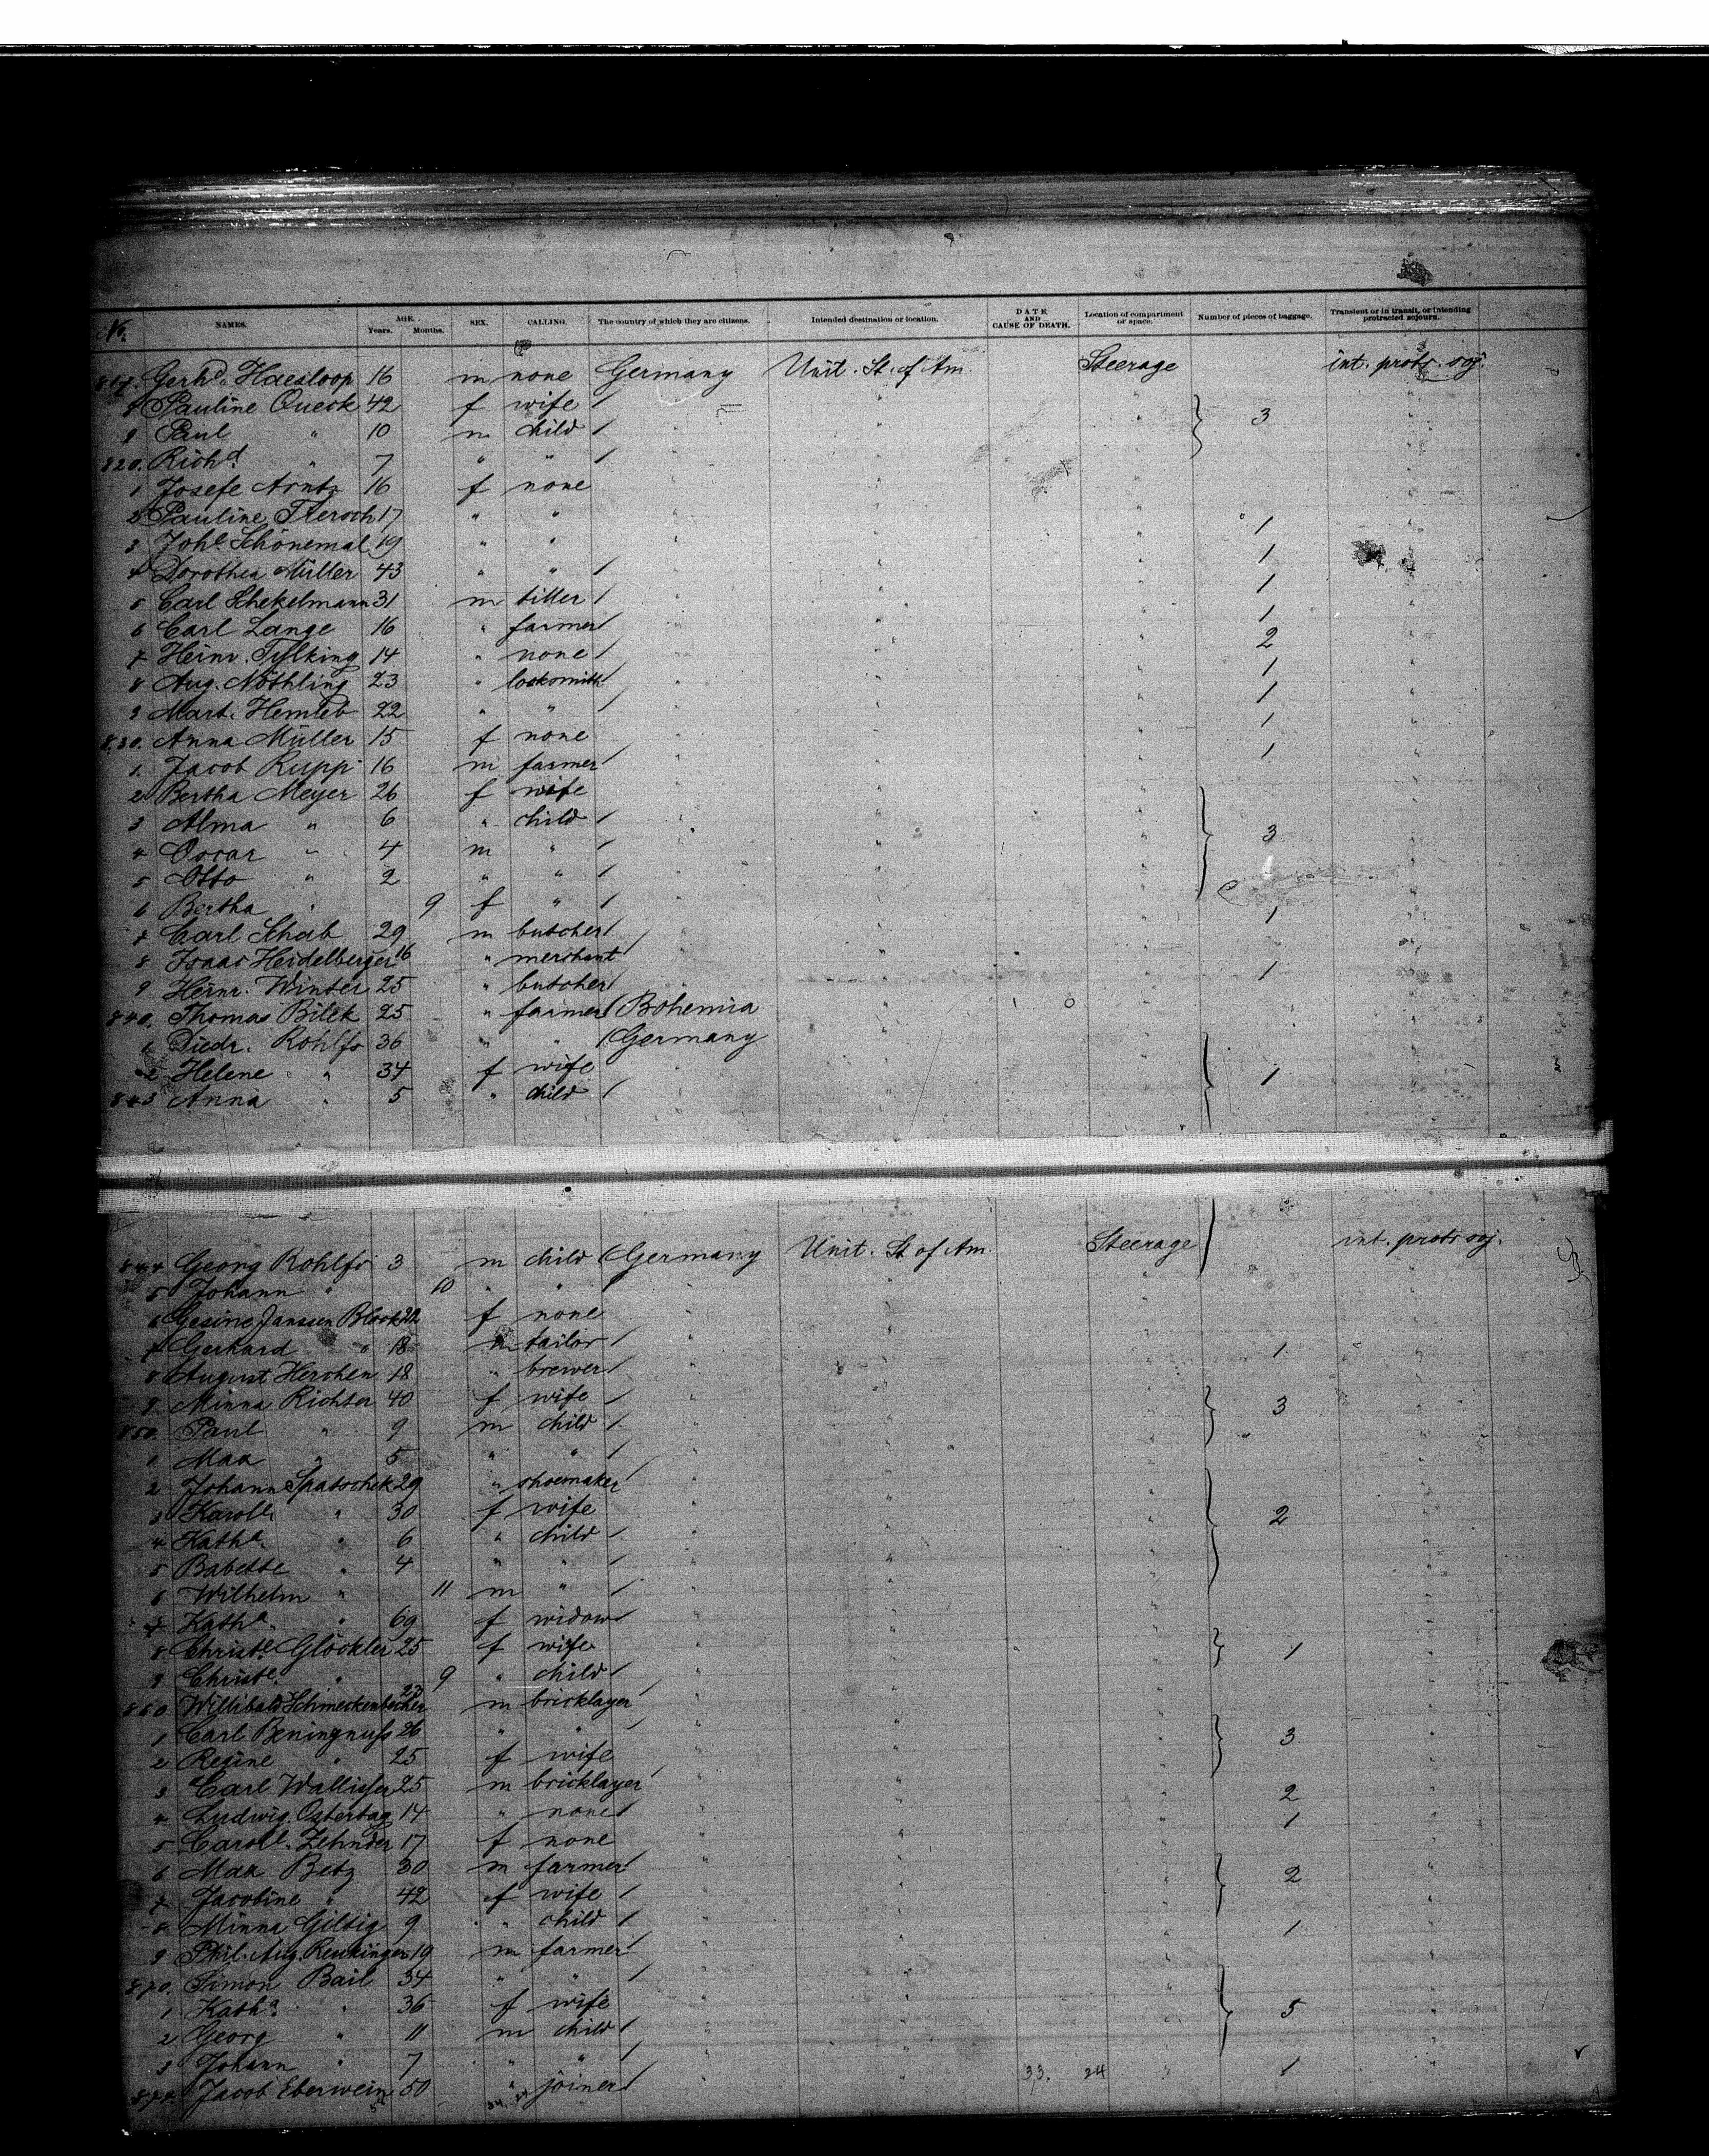 No. NAMES. AGE. Years. Months. SEX. CALLING. The country of which they are citizens. Intended destination or location. DATE AND CAUSE OF DEATH. Location of compartment or space. Number of pieces of baggage. Transient or in transit, or intending protracted sojourn.
817. Gerhd. Haesloop 16 m none Germany Unit. St. of Am. Steerage int. protr. soj.
8 Pauline Queck 42 f wife / 3
9 Paul " 10 m child /
820. Richd. " 7 " " /
1 Josefe Arntz 16 f none
2 Pauline 17 " " 1
3 Johe. Schönemal 19 " " 1
4 Dorothea Müller 43 " " / 1
5 Carl Schekelmann 31 m tiller / 1
6 Carl Lange 16 " farmer / 2
7 Heinr. 14 " none / 1
8 Aug. Nöthling 23 " locksmith / 1
9 Mart. Hemleb 22 " " / 1
830. Anna Müller 15 f none 1
1. Jacob Rupp 16 m farmer /
2 Bertha Meyer 26 f wife
3 Alma " 6 " child / 3
4 Oscar " 4 m " /
5 Otto " 2 " " /
6 Bertha " 9 f " / 1
7 Carl Schab 29 m butcher /
8 Isaac Heidelberger 16 " merchant / 1
9 Heinr. Winter 25 " butcher /
840. Thomas Bilek 25 " farmer / Bohemia
1 Diedr. Rohlfs 36 " " / Germany
2 Helene " 34 f wife 1
843 Anna " 5 " child /
844 Georg Rohlfs 3 m child / Germany Unit. St of Am. Steerage int. protr soj.
5 Johann " 10 " "
6 Gesine Janssen Block 22 f none
7 Gerhard " 18 m tailor / 1
8 August Herchen 18 " brewer /
9. Minna Richter 40 f wife / 3
850. Paul " 9 m child /
1 Max " 5 " " /
2 Johann Spatschek 29 " shoemaker /
3 Karole " 30 f wife 2
4 Katha. " 6 " child /
5 Babette " 4 " " /
6 Wilhelm " 11 m " /
7 Katha. " 69 f widow /
8 Christe. Glöckler 25 f wife 1
9 Christe. " 9 " child /
860 Willibald Schmeckenbecher 23 m bricklayer /
1 Carl Beningnuss 26 " " / 3
2 Regine " 25 f wife
3 Carl Wallisser 25 m bricklayer / 2
4 Ludwig Ostertag 14 " none / 1
5 Carole. Zehnder 17 f none
6 Max Betz 30 m farmer / 2
7 Jacobine " 42 f wife /
8 Minna Giltig 9 " child / 1
9 Phil. Aug. 19 m farmer /
870. Simon Bail 34 " " /
1 Katha. " 36 f wife 5
2 Georg " 11 m child /
3 Johann " 7 " " /
874. Jacob Eberwein 50 " joiner / 33. 24 1